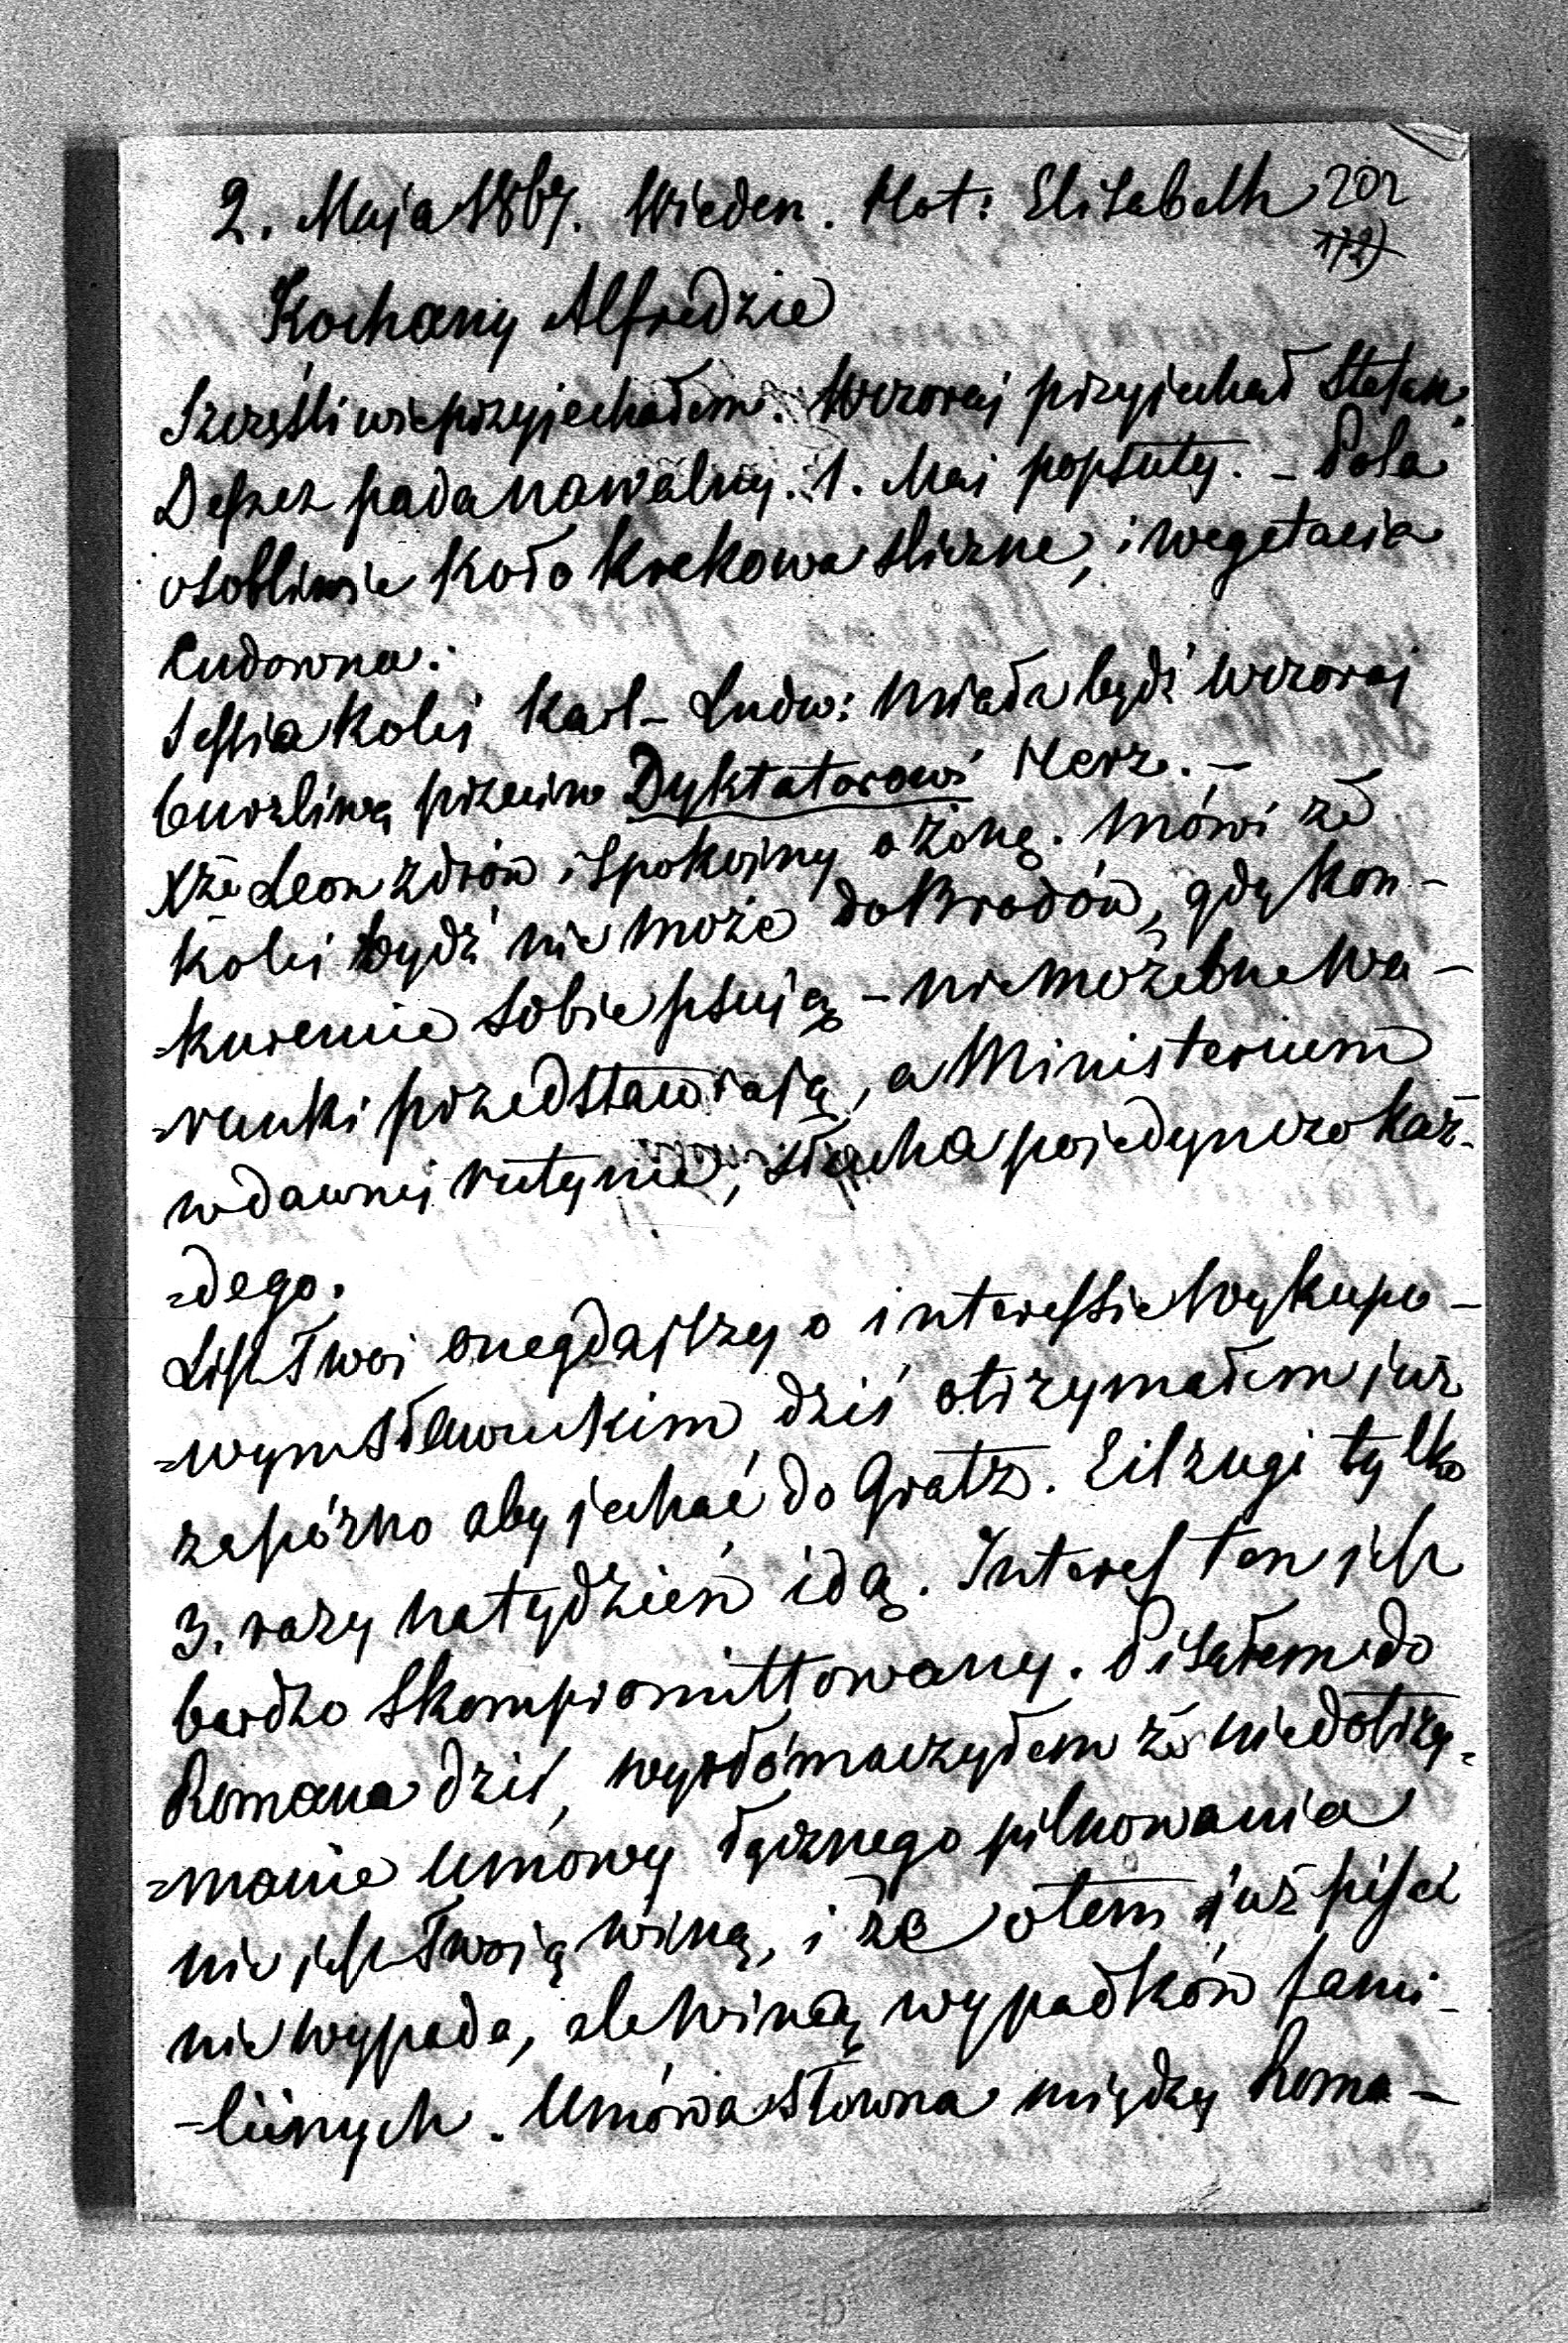 2. Maja 1867. Wieden. Hot: Elisabeth 202
172)
Kochany Alfredzie
Szczęśliwie przyjechałem. Wczoraj przyjechał Stefan.
Deszcz pada nawalny. 1. Maj popsuty. – Pola
osobliwie koło Krakowa sliczne, i wegetacia
Cudowna.
Sessia kolei Karl-Ludw: miała bydź wczoraj
burzliwą przeciw Dyktatorowi Herz. –
Xże Leon zdrów i spokojny o żonę. Mówi że
kolei bydź nie może do Brodów, gdy kon-
=kurencie sobie psują – niemożebne wa-
=runki przedstawiają, a Ministerium
w dawnej rutynie, słucha pojedynczo każ-
=dego.
List Twoj onegdajszy o interessie Wykupo-
=wym dziś otrzymałem już
zapóżno aby jechać do Gratz. Eilzugi tylko
3. razy na tydzień idą. Interes ten jest
bardzo skompromittowany. Pisałem do
Romana dziś, wytłómaczyłem że niedotrzy-
=manie umowy łącznego pilnowania
nie jest Twoią winą, i że o tem już pisać
nie wypada, ale winą wypadków fami-
-lijnych. Umowa słowna między Roma-